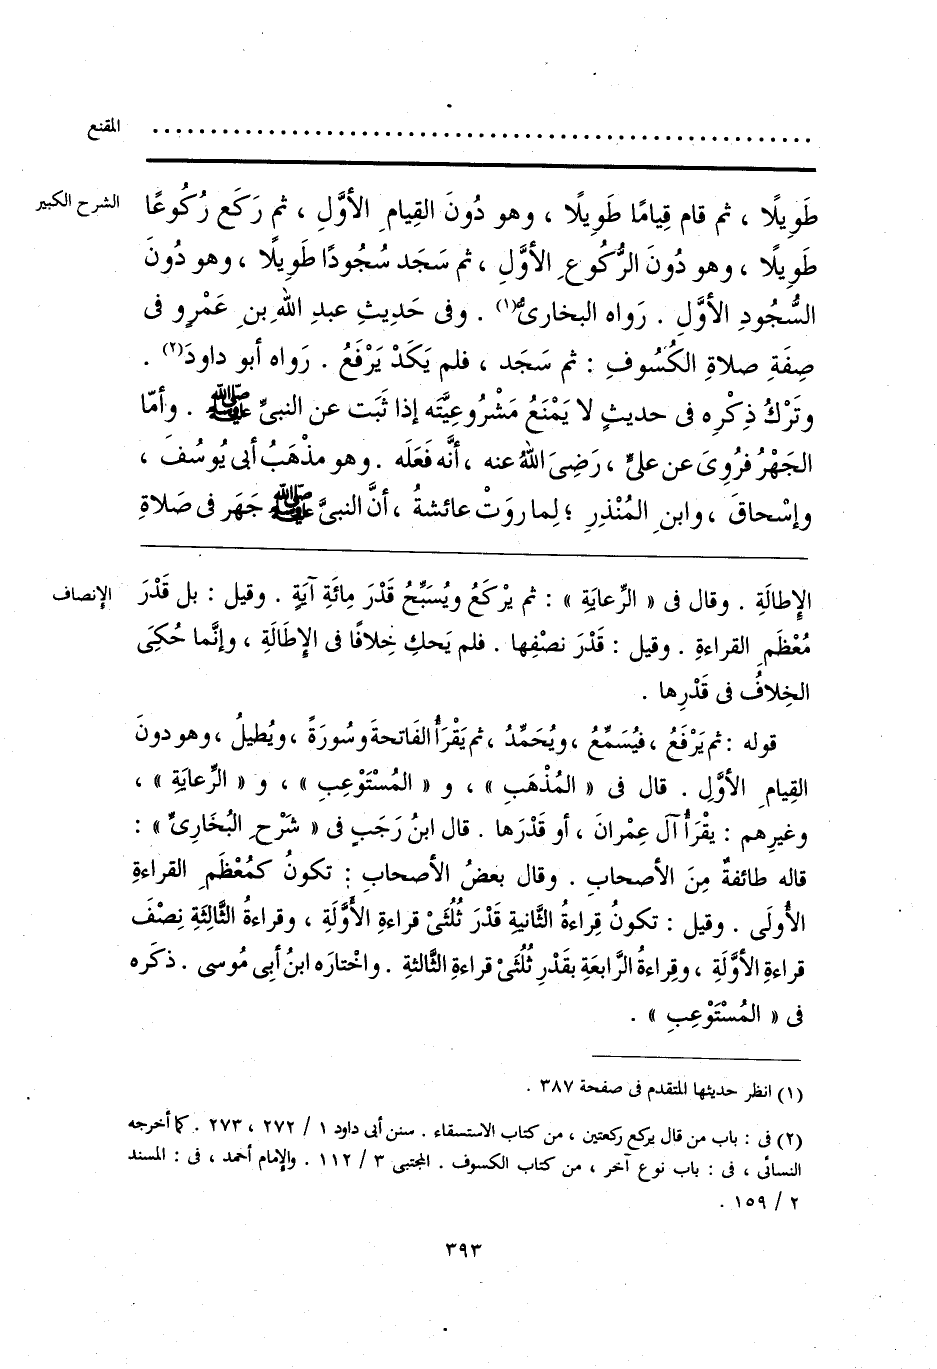 المقنع ................................................................
الشرح الكبير طَوِيلًا ، ثم قام قِيامًا طَوِيلًا ، وهو دُونَ القِيامِ الأوَّلِ ، ثم رَكَع رُكُوعًا
طَوِيلًا ، وهو دُونَ الرُّكُوعِ الأوَّلِ ، ثم سَجَد سُجُودًا طَوِيلًا ، وهو دُونَ
السُّجُودِ الأوَّلِ . رَواه البخارىُّ(١) . وفى حَدِيثِ عبدِ اللهِ بنِ عَمْرٍو فى
صِفَةِ صلاةِ الكُسُوفِ : ثم سَجَد ، فلم يَكَدْ يَرْفَعُ . رَواه أبو داودَ(٢) .
وتَرْكُ ذِكْرِه فى حديثٍ لا يَمْنَعُ مَشْرُوعِيَّتَه إذا ثَبَت عن النبىِّ ﷺ . وأمّا
الجَهْرُ فرُوِىَ عن علىٍّ ، رَضِىَ اللهُ عنه ، أنَّه فَعَلَه . وهو مذْهَبُ أبى يُوسُفَ ،
وإسْحاقَ ، وابنِ المُنْذِرِ ؛ لِما روَتْ عائشةُ ، أنَّ النبىَّ ﷺ جَهَر فى صَلاةِ
الإنصاف الإِطالَةِ . وقال فى « الرِّعايَةِ » : ثم يرْكَعُ ويُسَبِّحُ قَدْرَ مِائَةِ آيَةٍ . وقيل : بل قَدْرَ
مُعْظَمِ القراءةِ . وقيل : قَدْرَ نصْفِها . فلم يَحكِ خِلافًا فى الإِطَالَةِ ، وإنَّما حُكِىَ
الخِلافُ فى قَدْرِها .
قوله : ثم يَرْفَعُ ، فيُسَمِّعُ ، ويُحَمِّدُ ، ثم يَقْرَأُ الفَاتحةَ وسُورَةً ، ويُطيلُ ، وهو دونَ
القِيامِ الأوَّلِ . قال فى « المُذْهَبِ » ، و « المُسْتَوْعِبِ » ، و « الرِّعايَةِ » ،
وغيرِهم : يقْرَأُ آلَ عِمْرانَ ، أو قَدْرَها . قال ابنُ رَجَبٍ فى « شَرْحِ البُخَارِىِّ » :
قاله طائفةٌ مِنَ الأصحابِ . وقال بعضُ الأصحابِ : تكونُ كمُعْظَمِ القراءةِ
الأُولَى . وقيل : تكونُ قِراءةُ الثَّانيةِ قَدْرَ ثُلُثَىْ قراءةِ الأَوَّلَةِ ، وقراءةُ الثَّالِثَةِ نِصْفَ
قراءةِ الأوَّلَةِ ، وقِراءةُ الرَّابعَةِ بقَدْرِ ثُلُثَىْ قراءةِ الثَّالثةِ . واخْتارَه ابنُ أبِى مُوسى . ذكَره
فى « المُسْتَوْعِبِ » .
(١) انظر حديثها المتقدم فى صفحة ٣٨٧ .
(٢) فى : باب من قال يركع ركعتين ، من كتاب الاستسقاء . سنن أبى داود ١ / ٢٧٢ ، ٢٧٣ . كما أخرجه
النسائى ، فى : باب نوع آخر ، من كتاب الكسوف . المجتبى ٣ / ١١٢ . والإمام أحمد ، فى : المسند
٢ / ١٥٩ .
٣٩٣